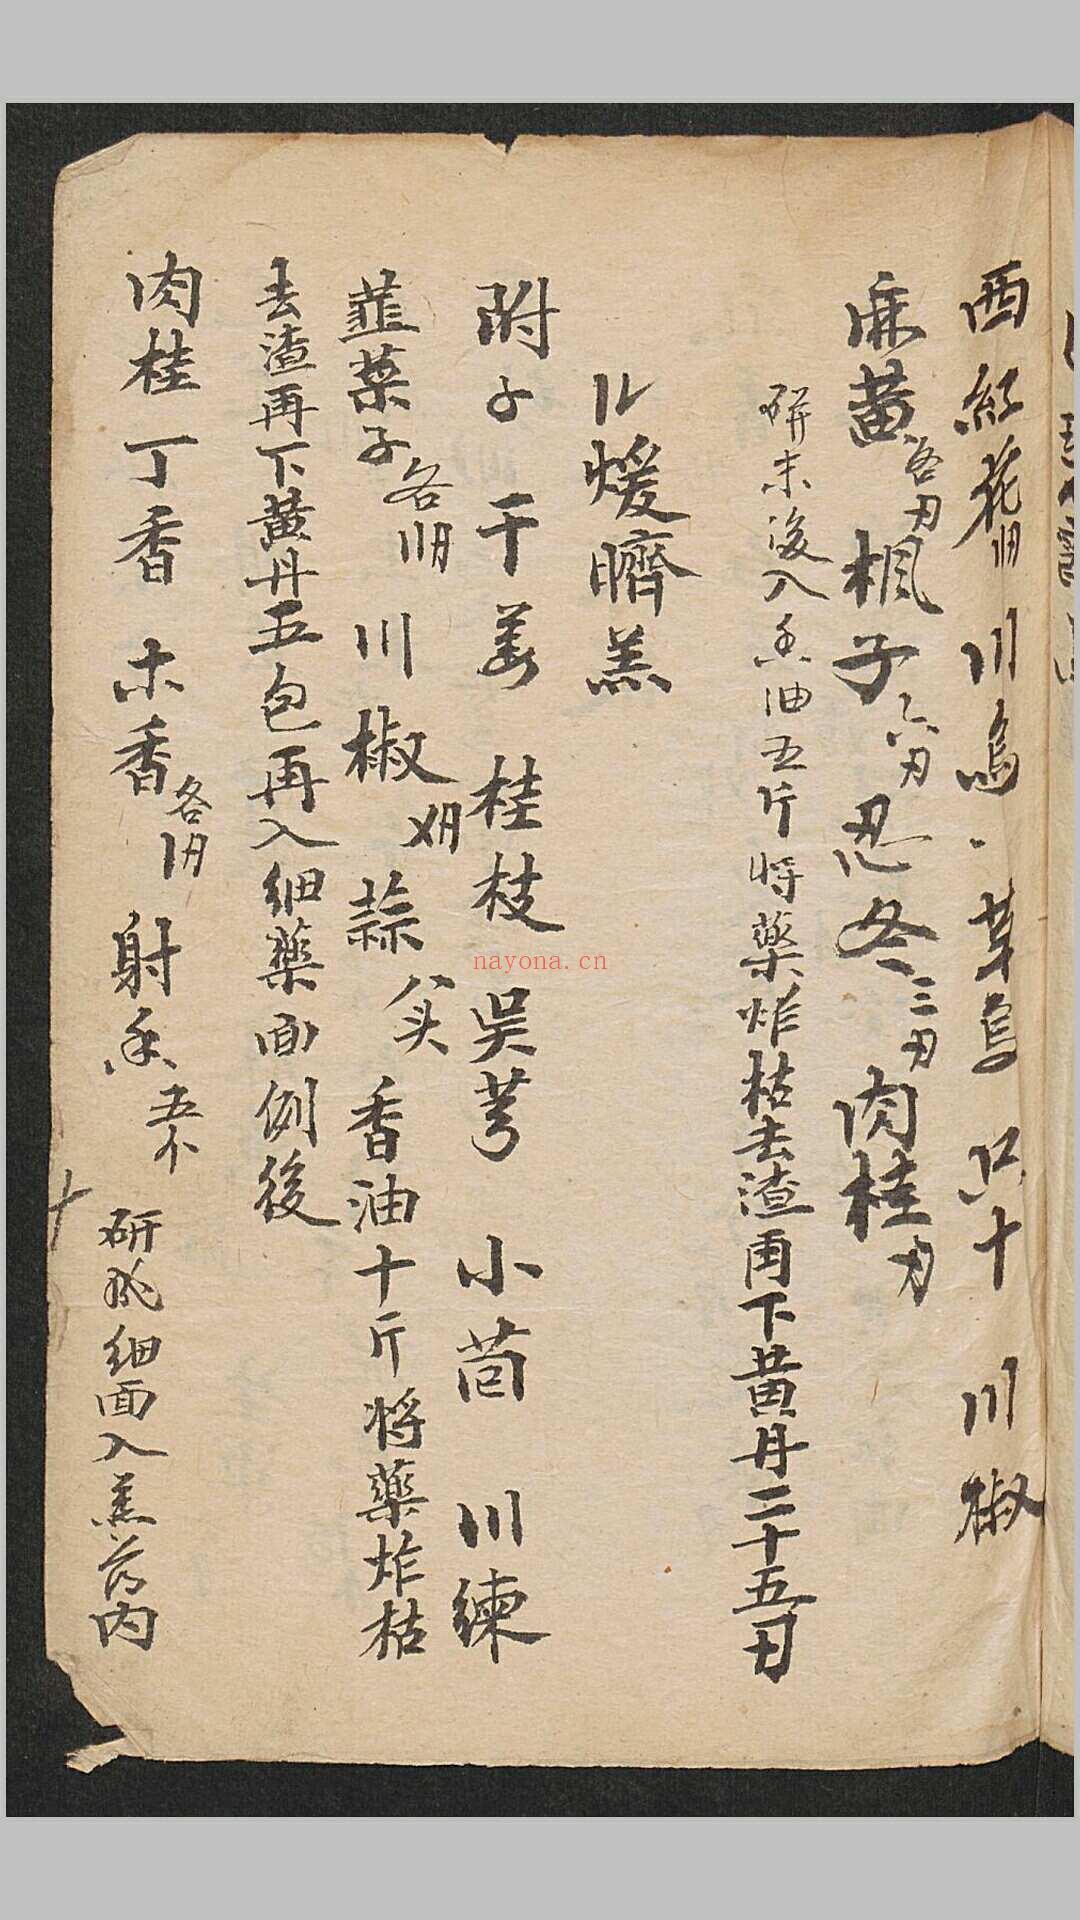 西紅花 川烏 草烏 只十 川椒
麻黄各刃 楓子六刃 忍冬三刃 肉桂刃
研末後入香油五斤将藥炸枯去渣再下黄丹二十五刃
煖臍羔
附子 干姜 桂枝 吳芋 小茴 川練
韮菜子各 川椒 蒜八头 香油十斤将藥炸枯
去渣再下黄丹五包再入細藥面例後
肉桂丁香 木香各 射香五个 研成細面入羔药内
nayona.cn